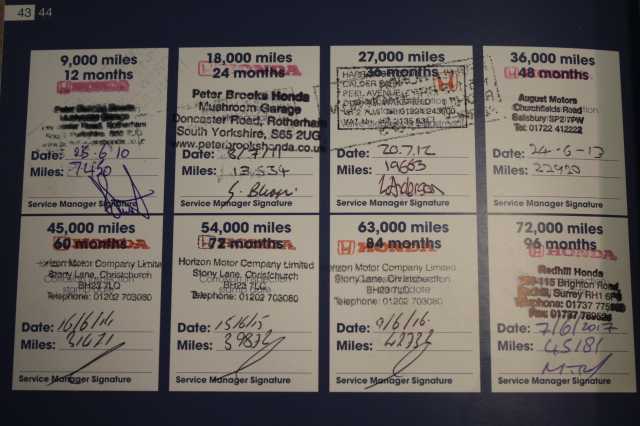 43 44
9,000 miles
12 months
Peter Brooks Honda
Mushroom Garage
Date: 25.6.10
Miles: 7420
Service Manager Signature
18,000 miles
24 months
HONDA
Peter Brooks Honda
Mushroom Garage
Doncaster Road, Rotherham
South Yorkshire, S65 2UG
www.peterbrookshonda.co.uk
Date: 8/7/11
Miles: 13,534
Service Manager Signature
27,000 miles
36 months
CALDER
PEEL AVENUE
Date: 20.7.12
Miles: 19663
Service Manager Signature
36,000 miles
48 months
HONDA
August Motors
Churchfields Road
Salisbury SP2 7PW
Tel: 01722 412222
Date: 24-6-13
Miles: 22920
Service Manager Signature
45,000 miles
60 months
HONDA
Horizon Motor Company Limited
Stony Lane, Christchurch
BH23 7LQ
Telephone: 01202 703080
Date: 16/6/14
Miles: 31671
Service Manager Signature
54,000 miles
72 months
HONDA
Horizon Motor Company Limited
Stony Lane, Christchurch
BH23 7LQ
Telephone: 01202 703080
Date: 15/6/15
Miles: 39832
Service Manager Signature
63,000 miles
84 months
HONDA
Horizon Motor Company Limited
Stony Lane, Christchurch
BH23 7LQ
Telephone: 01202 703080
Date: 9/6/16
Miles: 42332
Service Manager Signature
72,000 miles
96 months
HONDA
Redhill Honda
115 Brighton Road
Surrey RH1
Date: 7/6/2017
Miles: 45181
Service Manager Signature